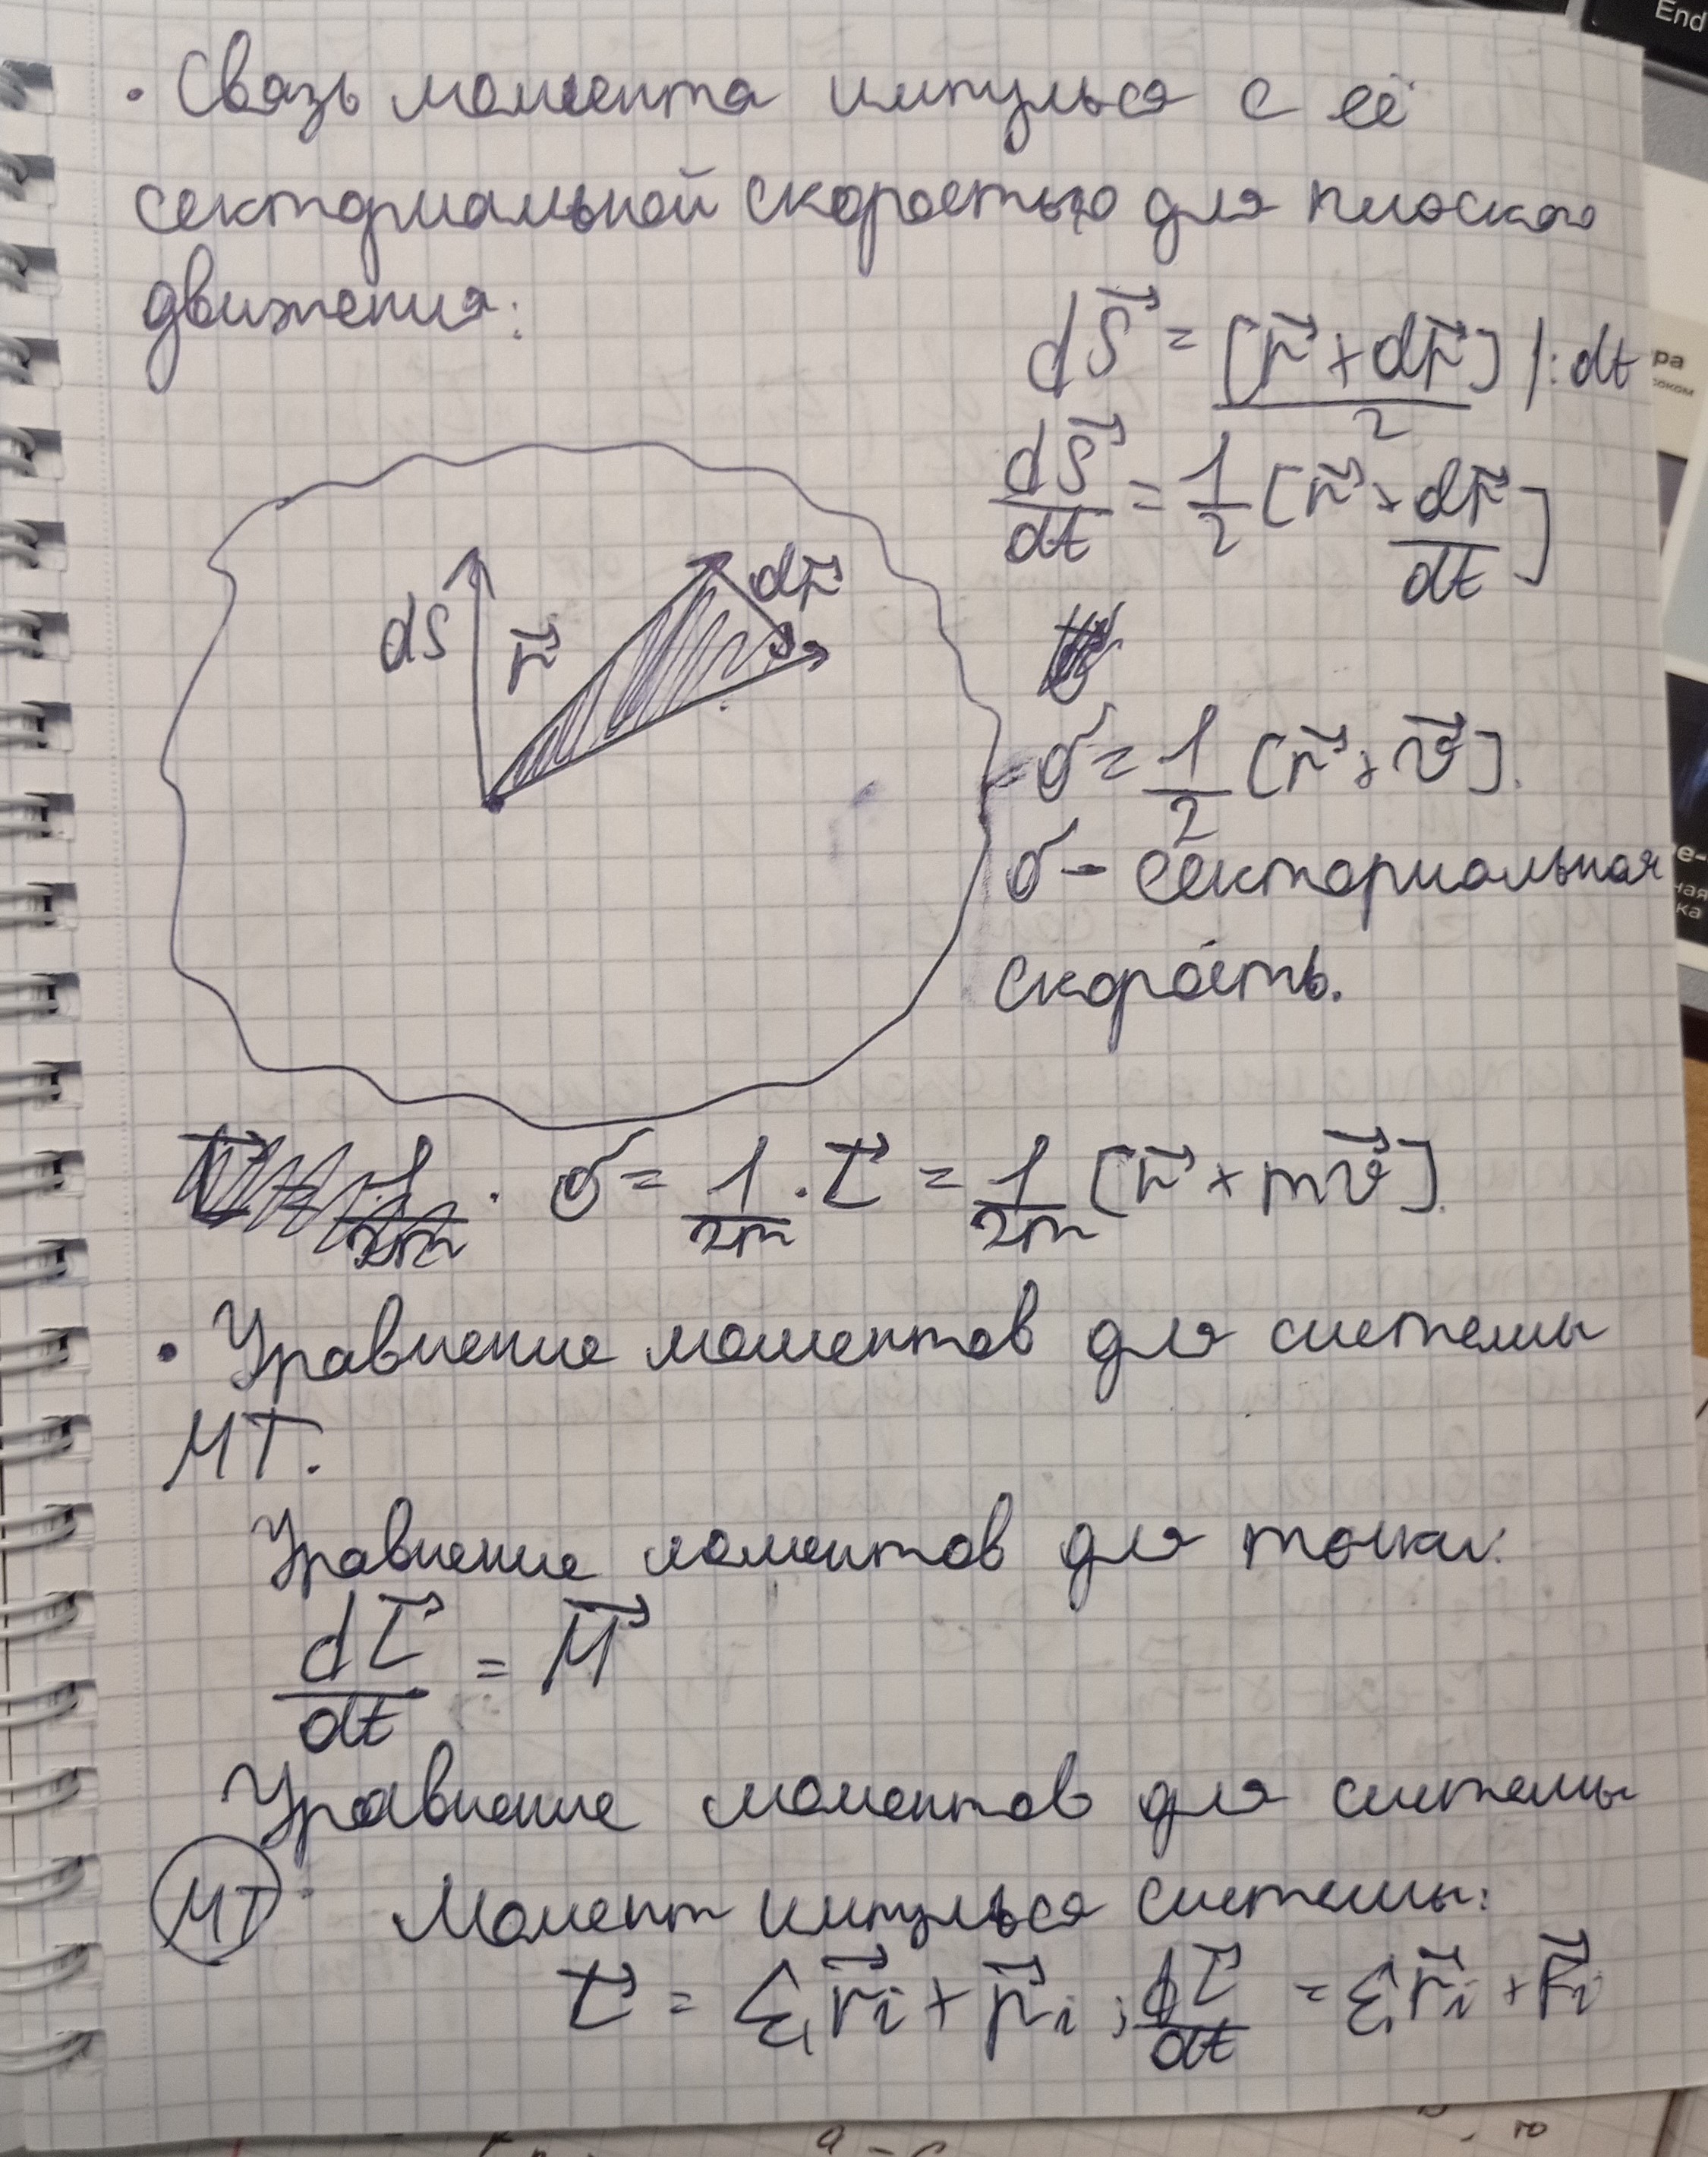 • Связь момента импульса с её
секториальной скоростью для плоского
движения:
dS⃗ = [r⃗ × dr⃗]/2 |: dt
dS⃗/dt = 1/2 [r⃗ × dr⃗/dt]
dS
r⃗
dr⃗
σ = 1/2 [r⃗ × v⃗].
σ - секториальная
скорость.
σ = 1/2m · L⃗ = 1/2m [r⃗ × mv⃗].
• Уравнение моментов для системы
МТ.
Уравнение моментов для точки:
dL⃗/dt = M⃗
Уравнение моментов для системы
МТ: Момент импульса системы:
L⃗ = Σᵢ r⃗ᵢ × p⃗ᵢ ; dL⃗/dt = Σᵢ r⃗ᵢ × F⃗ᵢ
End